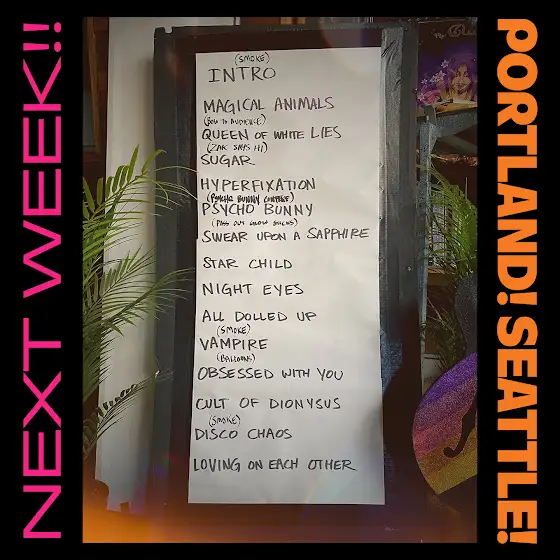 NEXT WEEK!!
(SMOKE)
INTRO
MAGICAL ANIMALS
(BOW TO AUDIENCE)
QUEEN OF WHITE LIES
(ZAK SAYS HI)
SUGAR
HYPERFIXATION
(PSYCHO BUNNY CONTEST)
PSYCHO BUNNY
(PASS OUT GLOW STICKS)
SWEAR UPON A SAPPHIRE
STAR CHILD
NIGHT EYES
ALL DOLLED UP
(SMOKE)
VAMPIRE
(BALLOONS)
OBSESSED WITH YOU
CULT OF DIONYSUS
(SMOKE)
DISCO CHAOS
LOVING ON EACH OTHER
PORTLAND! SEATTLE!